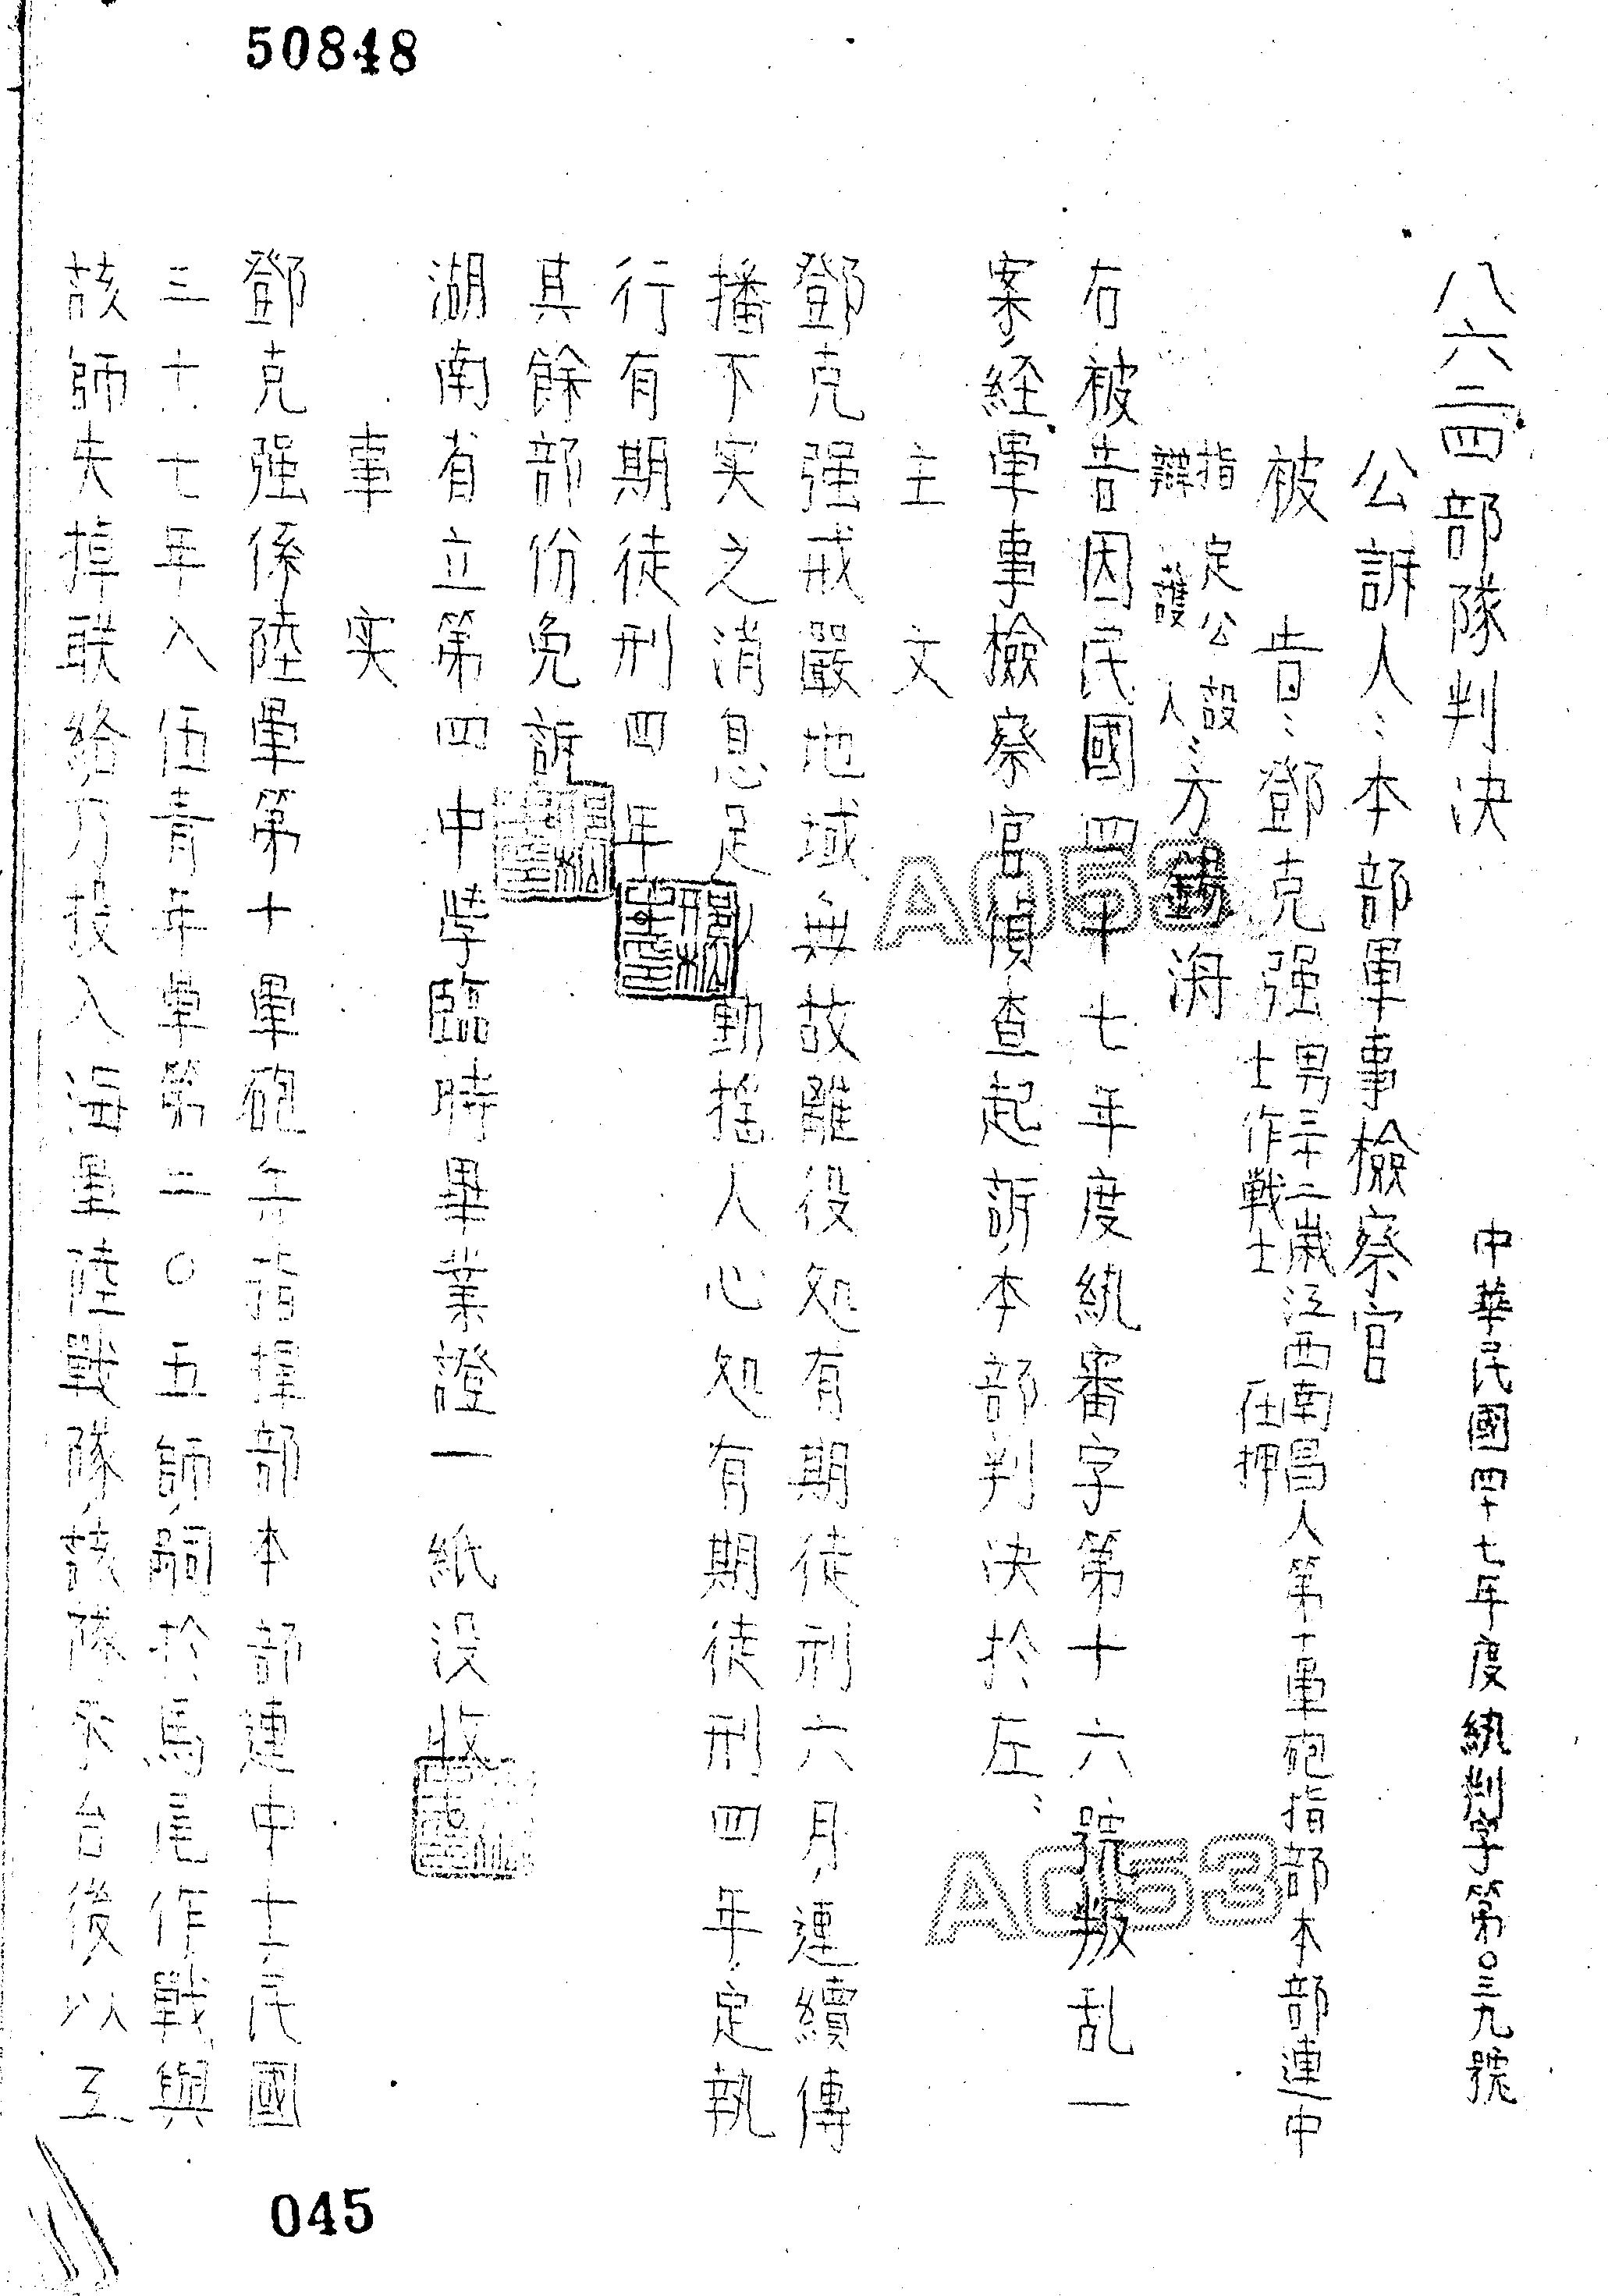 50848
八六三四部隊判決
中華民國四十七年度紈判字第〇三九號
公訴人:本部軍事檢察官
被告:鄧克强男三十二歲江西南昌人第十軍砲指部本部連中
士作戰士 在押
指定公設
辯護人:方錫海
右被告因民國四十七年度紈審字第十六號叛乱一
案,経軍事檢察官偵查起訴,本部判決於左:
主文
鄧克强戒嚴地域無故離役処有期徒刑六月,連續傳
播下实之消息足以動搖人心処有期徒刑四年,定執
行有期徒刑四年
其餘部份免訴
湖南省立第四中學臨時畢業證一紙沒收
事实
鄧克强係陸軍第十軍砲兵指揮部本部連中士,民國
三十七年入伍青年軍第二〇五師,嗣於馬尾作戰與
該師失掉联絡,乃投入海軍陸戰隊,該隊來台後,以工
045
A053
A053